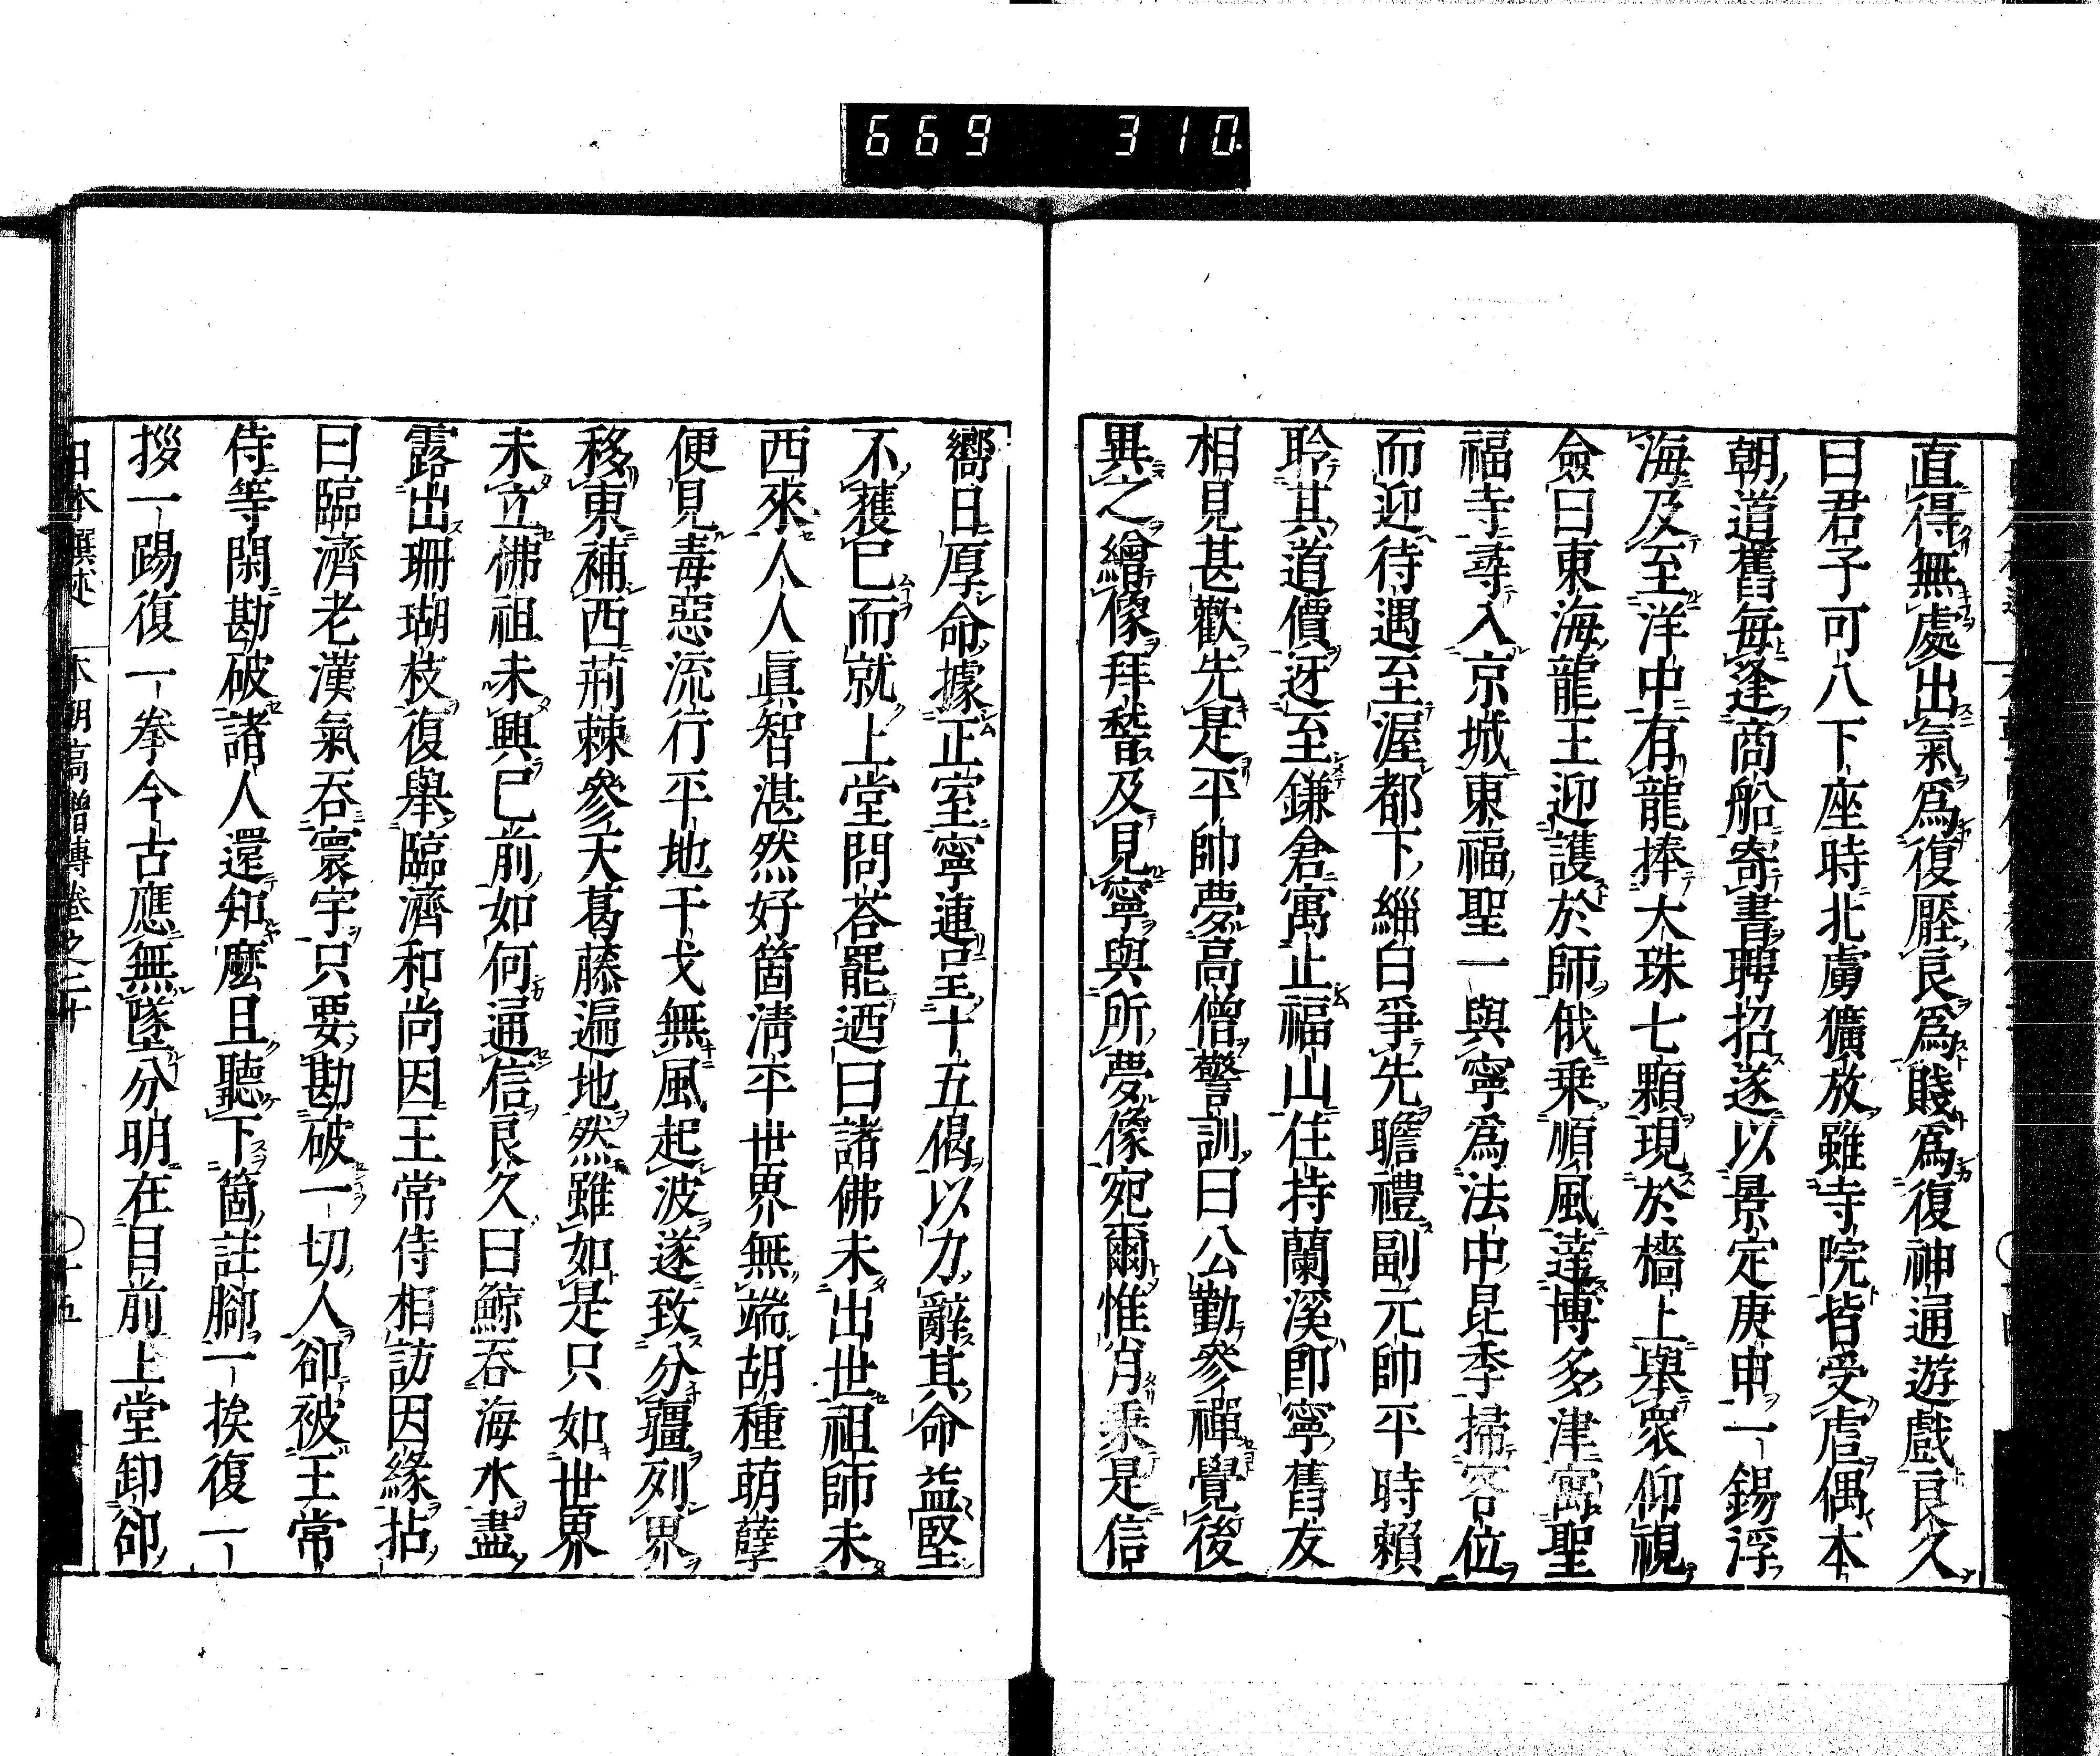 669 310
直得無處出氣爲復壓良爲賤爲復神通遊戲良久
曰君子可八下座時北虜獷放雖寺院皆受虐偶本
朝道舊每逢商船寄書聘招遂以景定庚申一錫浮
海及至洋中有龍捧大珠七顆現於檣上舉衆仰視
僉曰東海龍王迎護於師俄乘順風達博多津寓聖
福寺尋入京城東福聖一與寧爲法中昆季掃客位
而迎待遇至渥都下緇白爭先瞻禮副元帥平時賴
聆其道價迓至鎌倉寓止福山住持蘭溪卽寧舊友
相見甚歡先是平帥夢高僧警訓曰公勤參禪覺後
異之繪像拜瞽及見寧與所夢像宛爾惟肖乘是信
嚮日厚命據正室寧連呈十五偈以力辭其命益堅
不獲已而就上堂問荅罷迺曰諸佛未出世祖師未
西來人人眞智湛然好箇淸平世界無端胡種萌孽
便見毒惡流行平地干戈無風起波遂致分疆列界
移東補西荊棘參天葛藤遍地然雖如是只如世界
未立佛祖未興已前如何通信良久曰鯨吞海水盡
露出珊瑚枝復舉臨濟和尚因王常侍相訪因緣拈
曰臨濟老漢氣吞寰宇只要勘破一切人卻被王常
侍等閑勘破諸人還知麼且聽下箇註腳一挨復一
拶一踢復一拳今古應無墜分明在目前上堂卸卻
日本撰述 本朝高僧傳卷之二十 〇十五